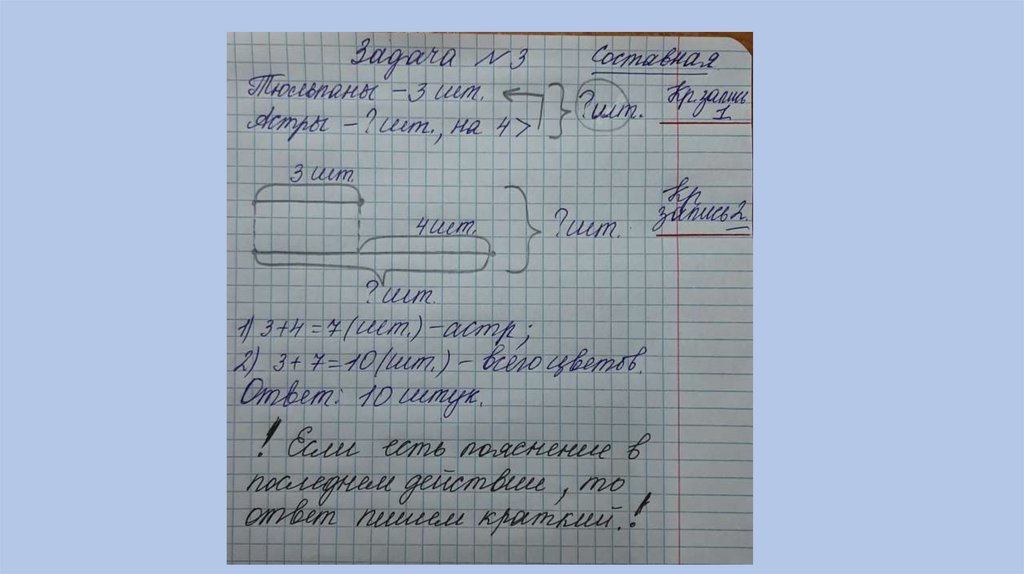 Задача №3 Составная
Тюльпаны – 3 шт.
Астры – ? шт., на 4 >
? шт.
Кр. запись
1
3 шт.
4 шт.
? шт.
Кр
запись 2.
? шт.
1) 3+4=7(шт.) – астр;
2) 3+7=10(шт.) – всего цветов.
Ответ: 10 штук.
! Если есть пояснение в
последнем действии, то
ответ пишем краткий.!